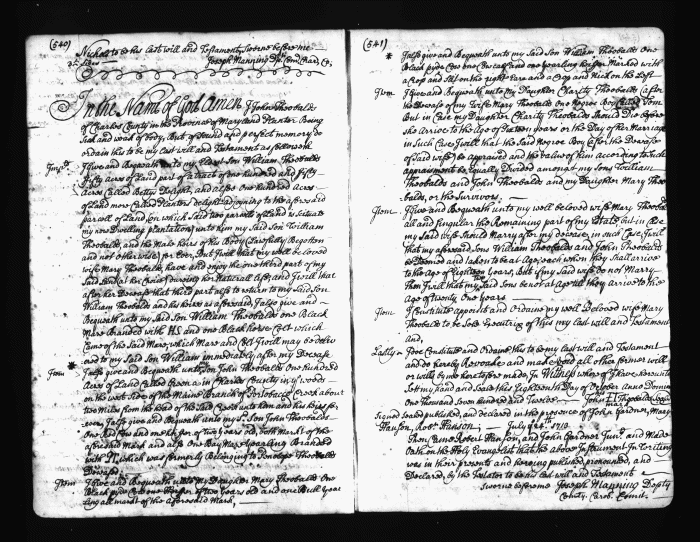 (540)
Nicholl to be his last will and Testament, Sworne before me
Joseph Manning Com Char Co,
In the Name of God Amen I John Thoobalds
of Charles County in the Province of Maryland Planter Being
Sick and weak of body, But of Sound and perfect memory do
ordain this to be my last will and Testament as followeth
I give and Bequeath unto my Eldest Son William Thoobalds
fifty acres of land part of a tract of one hundred and fifty
acres Called Bettys Delight, and also One hundred Acres
of land now Called Planters delight adjoyning to the aforesaid
parcell of land on which Said two parcells of land is Situate
my now Dwelling plantations, unto him my Said Son William
Thoobalds, and the Male Heirs of his Body Lawfully Begotten
and not otherwise for Ever, But I will that my well be loved
wife Mary Thoobalds, have and enjoy the one third part of my
Said land at her Choice during her Natural life, and I will that
after her Decease that third part is to return to my Said Son
William Thoobalds and his heirs as aforesaid, I also give and
Bequeath unto my Said Son William Thoobalds one Black
Mare Branded with HS and one Black horse Colt which
Came of the Said Mare, which Mare and Colt I will may be deliv
ered to my Said Son William immediately after my Decease
Item I also give and Bequeath unto Son John Thoobalds One hundred
Acres of land Called in Charles County in
on the west Side of the Main Branch of Creek about
two Miles from the head of the Said Creek unto him and his heirs for
ever, I also give and Bequeath unto my Sd. Son John Thoobalds
One Red Cow and one heifer, of two years old, both Markt of the
aforesaid Mark and also One Bay Mare Yearling Branded
with which was formerly Belonging to Thoobalds
Deceased,
Item I give and Bequeath unto my Daughter Mary Thoobalds One
Black pide Cow one heifer of two Years old and one Bull year
ling all markt of the aforesaid Mark,
(541)
I also give and Bequeath unto my Said Son William Thoobalds One
Black pyde Cow one Cow calf and one yearling heifer Marked with
a Crop and Slit on the right Eare and a Crop and Nick on the Left
Item I Give and Bequeath unto my Daughter Charity Thoobalds (after
the Decease of my Wife Mary Thoobalds One Negroe Boy Called Tom
But in Case my Daughter Charity Thoobalds Should Die Before
she Arrive to the Age of Sixteen years or the Day of her Marriage
in Such Case I will that the Said Negroe Boy (after the Decease
of Said wife) be appraised and the value of him according to Such
appraisment be Equally Divided amongst my Sons William
Thoobalds and John Thoobalds and my Daughter Mary Thoo
balds, or the Survivors,
Item I give and Bequeath unto my well be loved wife Mary Thoobalds
all and Singular the Remaining part of my Estate but in Case
my Said wife Should Marry after my decease, in such Case I will
that my aforesaid, Sons William Thoobalds and John Thoobalds
be Deemed and taken to be at Age, each when they Shall arrive
to the Age of Eighteen years, But if my Said wife Do not Marry
Then I will that my Said Sons be not at Age till they arrive to the
Age of twenty One years
Item I Constitute appoint and Ordaine my well Beloved wife Mary
Thoobalds to be Sole Executrix of this my last will and Testament
and,
Lastly I doe Constitute and Ordaine this to be my Last will and Testament
and do hereby Revoake and make Void all other former will
or wills by me heretofore made, In Witness where of I have hereunto
Set my hand and Seale this Eighteenth Day of October Anno Domini
One thousand Seven hundred and Twelve John Thoobalds
mark
Signed Sealed published, and declared in the presence of John Gardner, Mary
Hanson, Robt. Hanson, July 1713
Then Came Robert Hanson, and John Gardner Junr. and Made
Oath on the Holy Evangelist that the above Instrument In Writing
was in their presents and hearing published, pronounced, and
Declared, by the Testator to be his last will and Testament
Sworne before me Joseph Manning Depty
County Comis.